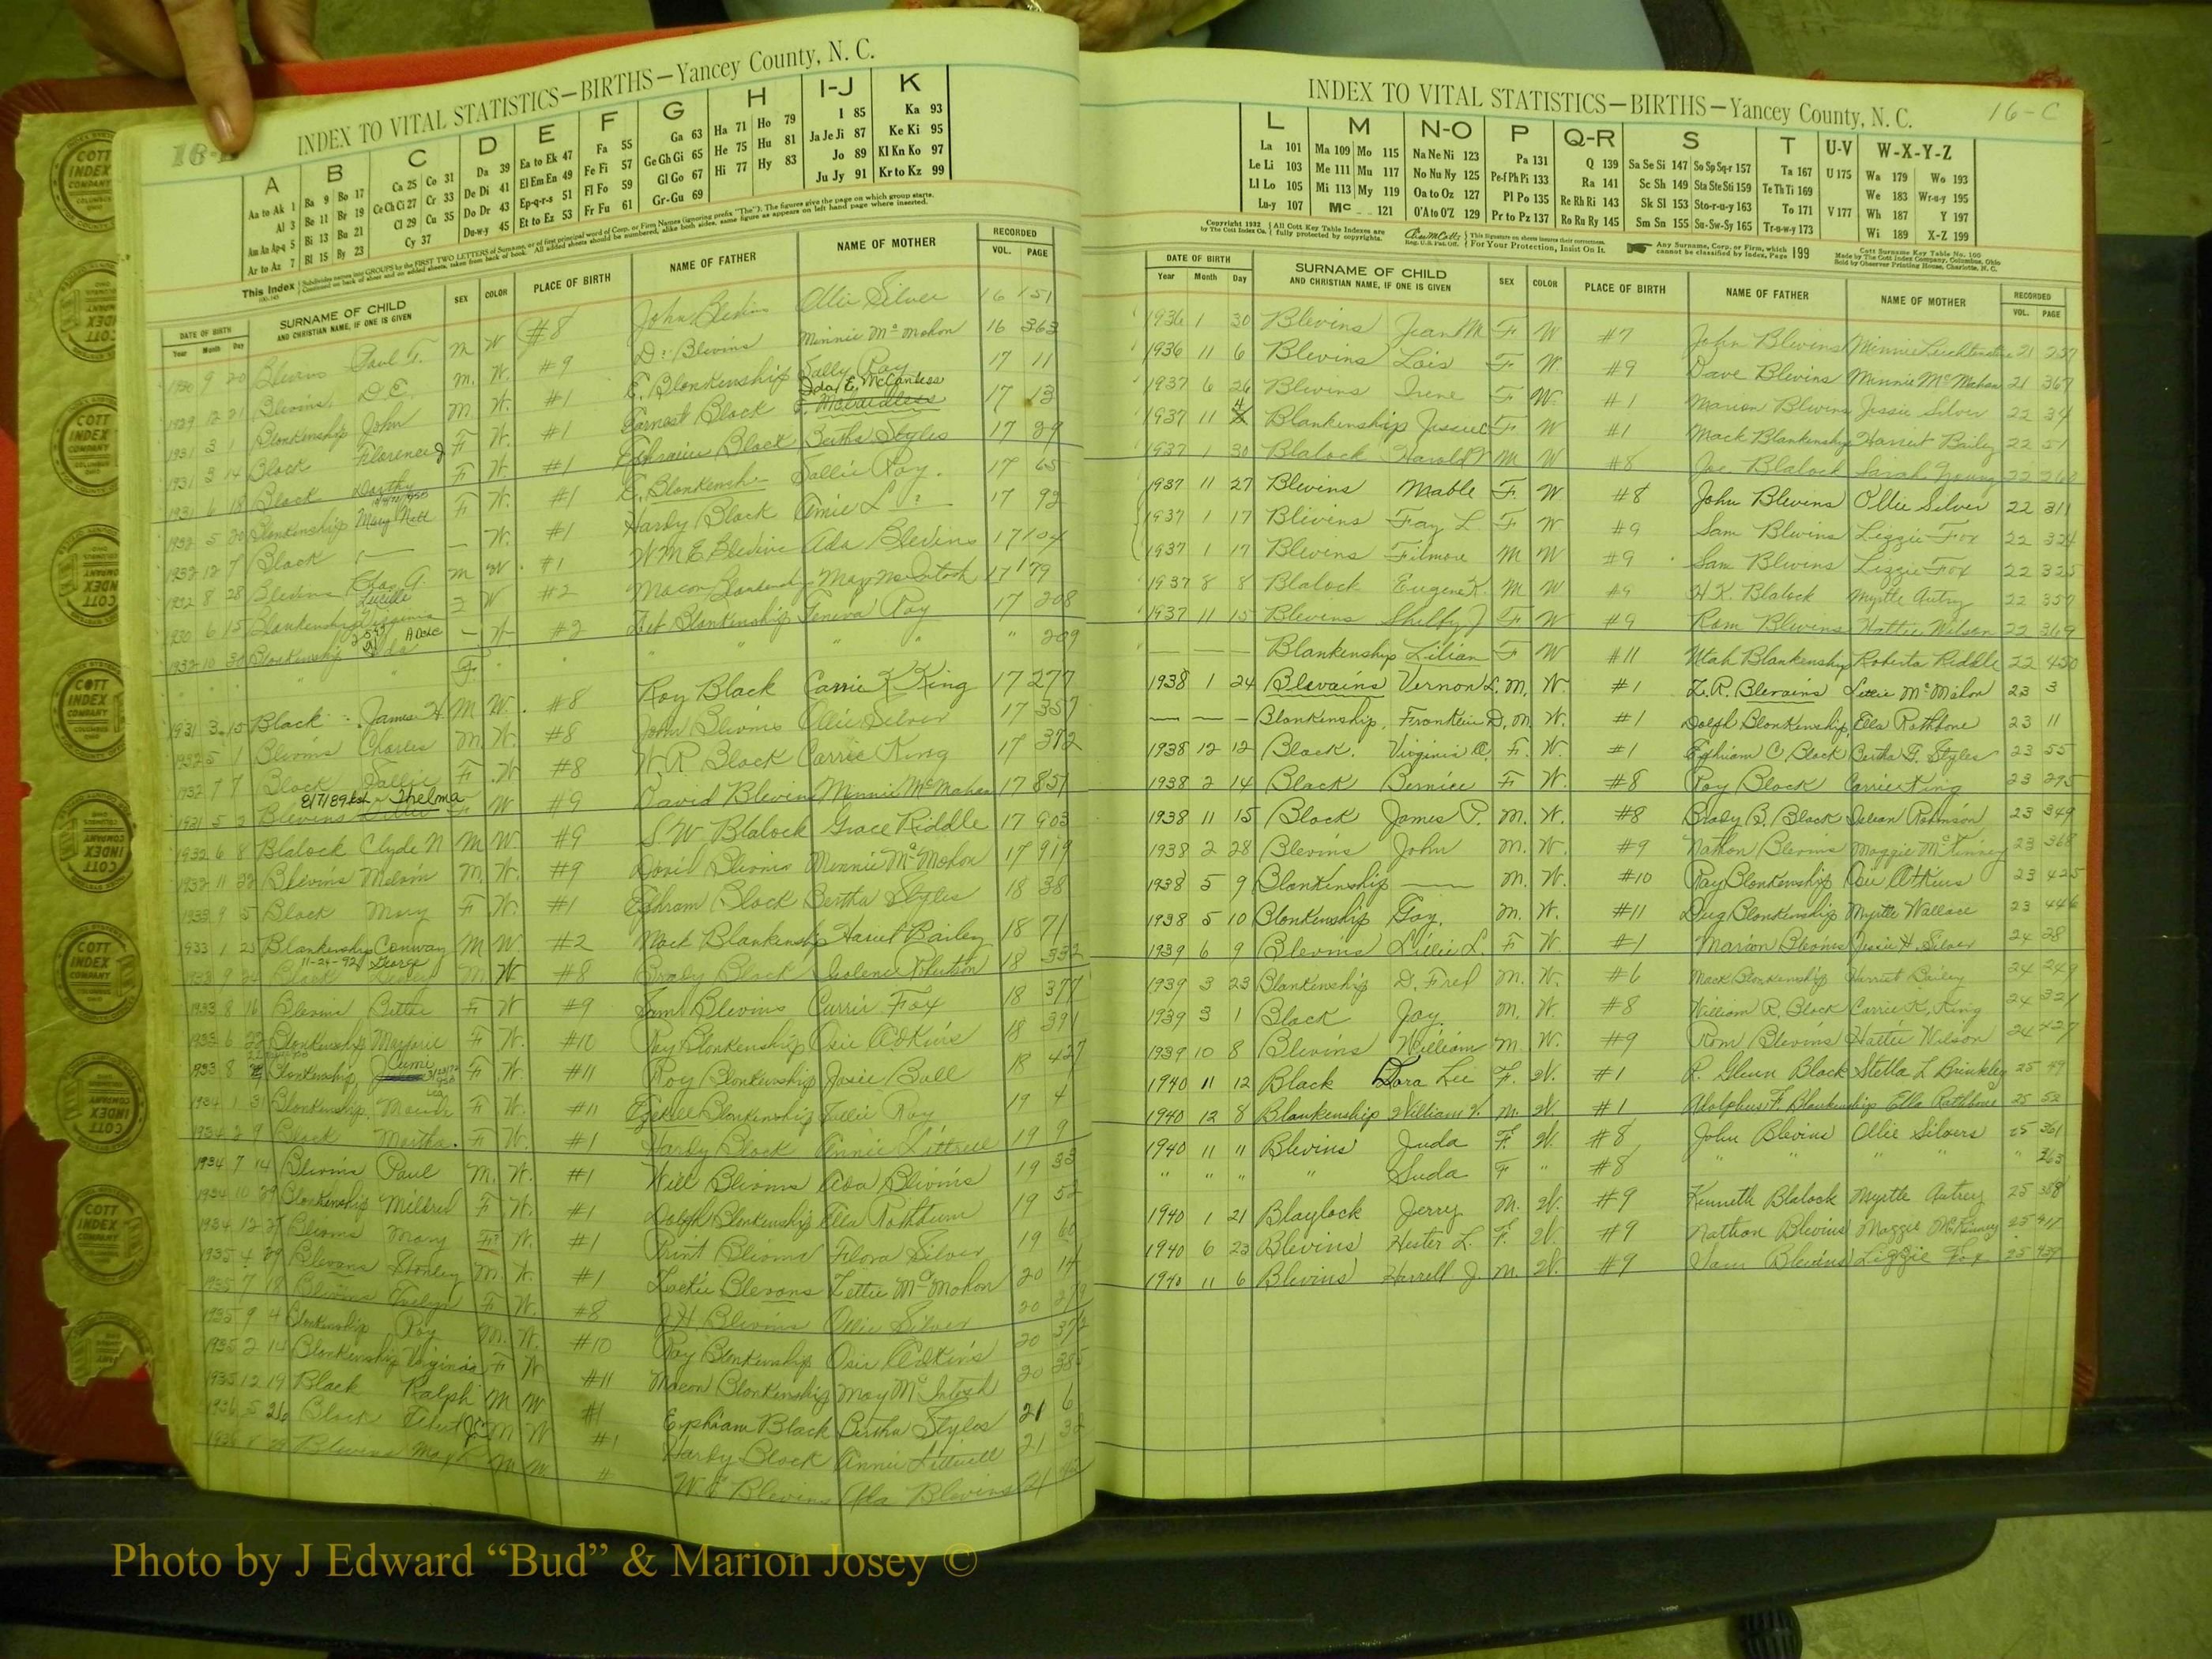 16-C
INDEX TO VITAL STATISTICS—BIRTHS—Yancey County, N. C.
A B C D E F G H I-J K
Aa to Ak 1 Ba 9 Bo 17 Ca 25 Co 31 Da 39 Ea to Ek 47 Fa 55 Ga 63 Ha 71 Ho 79 I 85 Ka 93
Al 3 Be 11 Br 19 Ce Ch Ci 27 Cr 33 De Di 41 El Em En 49 Fe Fi 57 Ge Gh Gi 65 He 75 Hu 81 Ja Je Ji 87 Ke Ki 95
Am An Ap-q 5 Bi 13 Bu 21 Cl 29 Cu 35 Do Dr 43 Ep-q-r-s 51 Fl Fo 59 Gl Go 67 Hi 77 Hy 83 Jo 89 Kl Kn Ko 97
Ar to Az 7 Bl 15 By 23 Cy 37 Du-w-y 45 Et to Ez 53 Fr Fu 61 Gr-Gu 69 Ju Jy 91 Kr to Kz 99
DATE OF BIRTH SURNAME OF CHILD AND CHRISTIAN NAME, IF ONE IS GIVEN SEX COLOR PLACE OF BIRTH NAME OF FATHER NAME OF MOTHER RECORDED
Year Month Day VOL. PAGE
9 20 Blevins Paul F. M W #8 John Blevins Ollie Silver 16 151
1929 12 21 Blevins, D.E. M. W. #9 D? Blevins Minnie McMahon 16 363
1931 3 1 Blankenship John M W. #1 E. Blankenship Sally Ray 17 11
1931 3 14 Black Florence J F W. #1 Earnest Black Ida E. McCanless 17 13
1931 6 18 Black Dorthy F W. #1 Ephraim Black Bertha Styles 17 29
1932 5 20 Blankenship Mary Nell F W. #1 E. Blankensh- Sallie Ray. 17 65
1932 12 7 Black — — W. #1 Hardy Black Amie L ? 17 92
1932 8 28 Blevins Chas. G. M W. #1 W.M.E. Blevins Ada Blevins 17 104
1930 6 15 Blankenship F W #2 Macon Blankenship May McIntosh 17 179
1932 10 Blankenship Ada — W #2 Blankenship Geneva Ray 17 208
" " " F. " " " " " 209
1931 3 15 Black James H. M W. #8 Roy Black Carrie K King 17 277
1932 5 1 Blevins Charles M W. #8 John Blevins Ollie Silver 17 357
1932 7 7 Black Sallie F. W #8 W.R. Black Carrie King 17 372
1931 5 2 Blevins 8/7/89 Thelma W #9 David Blevins Minnie McMahan 17 851
1932 6 8 Blalock Clyde N M W. #9 S W Blalock Grace Riddle 17 903
1932 11 22 Blevins Melvin M. W. #9 David Blevins Minnie McMahon 17 919
1933 9 5 Black Mary F. W. #1 Ephram Black Bertha Styles 18 38
1933 1 25 Blankenship Conway M W. #2 Mack Blankenship Hariet Bailey 18 71
1933 9 24 Black 11-24-92 George M. W. #8 Brady Black 18 332
1933 8 16 Blevins F W #9 Sam Blevins Currie Fox 18 377
1933 6 22 Blankenship Marjorie F W. #10 Ray Blankenship Osie Adkins 18 391
1933 8 Blankenship, F. W. #11 Roy Blankenship Josie Ball 18 427
1934 1 31 Blankenship, F W. #11 Blankenship Sallie Ray 19 4
1934 2 9 Black Martha. F W. #1 Hardy Black Annie Littrell 19 9
1934 7 14 Blevins Paul M. W. #1 Will Blevins Ada Blevins 19 33
1934 10 29 Blankenship Mildred F W. #1 Dolph Blankenship Ella Rathbone 19 52
1934 12 27 Blevins Mary F? W. #1 Print Blevins Flora Silver 19 60
1935 4 29 Blevans Stanley M. W. #1 Blevans Lettie McMahon 20 14
1935 7 18 Blevins Evelyn F W. #8 J.H. Blevins Ollie Silver 20
1935 9 4 Blankenship Roy M. W. #10 Ray Blankenship Osie Adkins 20
1935 2 14 Blankenship Virginia F W #11 Macon Blankenship May McIntosh 20 385
1935 12 19 Black Ralph M W #1 Ephriam Black Bertha Styles 21 6
1936 5 26 Black M W #1 Hardy Black Annie Littrell 21
Blevins M W # W E Blevins Ada Blevins 21
16-C
INDEX TO VITAL STATISTICS—BIRTHS—Yancey County, N. C.
L M N-O P Q-R S T U-V W-X-Y-Z
La 101 Ma 109 Mo 115 Na Ne Ni 123 Pa 131 Q 139 Sa Se Si 147 So Sp Sq-r 157 Ta 167 U 175 Wa 179 Wo 193
Le Li 103 Me 111 Mu 117 No Nu Ny 125 Pe-f Ph Pi 133 Ra 141 Sc Sh 149 Sta Ste Sti 159 Te Th Ti 169 We 183 Wr-u-y 195
Ll Lo 105 Mi 113 My 119 Oa to Oz 127 Pl Po 135 Re Rh Ri 143 Sk Sl 153 Sto-r-u-y 163 To 171 V 177 Wh 187 Y 197
Lu-y 107 Mc 121 O'A to O'Z 129 Pr to Pz 137 Ro Ru Ry 145 Sm Sn 155 Su-Sw-Sy 165 Tr-u-w-y 173 Wi 189 X-Z 199
Copyright 1932 by The Cott Index Co. All Cott Key Table Indexes are fully protected by copyrights. This Signature on sheets insures their correctness. For Your Protection, Insist On It. Any Surname, Corp. or Firm, which cannot be classified by Index, Page 199 Cott Surname Key Table No. 100 Made by The Cott Index Company, Columbus, Ohio Sold by Observer Printing House, Charlotte, N. C.
DATE OF BIRTH SURNAME OF CHILD AND CHRISTIAN NAME, IF ONE IS GIVEN SEX COLOR PLACE OF BIRTH NAME OF FATHER NAME OF MOTHER RECORDED
Year Month Day VOL. PAGE
1936 1 30 Blevins Jean M. F W #7 John Blevins Minnie 21 237
1936 11 6 Blevins Lois F W #9 Dave Blevins Minnie McMahan 21 367
1937 6 26 Blevins Irene F W #1 Marion Blevins Jessie Silver 22 34
1937 11 4 Blankenship Jessie F W #1 Mack Blankenship Harriet Bailey 22 51
1937 1 30 Blalock Harold M W #8 Joe Blalock Sarah Young 22
1937 11 27 Blevins Mable F W #8 John Blevins Ollie Silver 22 311
1937 1 17 Blevins Fay L. F W #9 Sam Blevins Lizzie Fox 22 324
1937 1 17 Blevins Filmore M W #9 Sam Blevins Lizzie Fox 22 325
1937 8 8 Blalock Eugene K. M W #9 H.K. Blalock Myrtle Autry 22 357
1937 11 15 Blevins Shelby J F W #9 Rom Blevins Hattie Wilson 22 369
— — — Blankenship Lilian F W #11 Utah Blankenship Roberta Riddle 22 450
1938 1 24 Blevains Vernon L. M. W. #1 Z.R. Blevains Lettie McMahon 23 3
— — — Blankenship, Franklin D. M. W. #1 Dolph Blankenship, Ella Rathbone 23 11
1938 12 12 Black. Virginia F. W. #1 Ephiam C. Black Bertha F. Styles 23 55
1938 2 14 Black Bernice F W. #8 Roy Black Carrie King 23 295
1938 11 15 Black James P. M. W. #8 Brady B. Black Robinson 23 349
1938 2 28 Blevins John M. W. #9 Nathan Blevins Maggie McKinney 23 368
1938 5 9 Blankenship — M. W. #10 Ray Blankenship Osie Atkins 23 425
1938 5 10 Blankenship Fay. M. W. #11 Dug Blankenship Myrtle Wallace 23 446
1939 6 9 Blevins Lillie L. F W. #1 Marion Blevins Jessie H. Silver 24 28
1939 3 23 Blankenship D. Fred M. W. #6 Mack Blankenship Harriet Bailey 24 249
1939 3 1 Black Jay. M. W. #8 William R. Black Carrie K. King 24 321
1939 10 8 Blevins William M. W. #9 Rom Blevins Hattie Wilson 24 427
1940 11 12 Black Dora Lee F. W. #1 R. Glenn Black Stella L Brinkley 25 49
1940 12 8 Blankenship William M. W. #1 Adolphus F. Blankenship Ella Rathbone 25 52
1940 11 11 Blevins Juda F. W. #8 John Blevins Ollie Silvers 25 361
" " " " Suda F " #8 " " " " " 363
1940 1 21 Blaylock Jerry M. W. #9 Kenneth Blalock Myrtle Autrey 25 388
1940 6 23 Blevins Hester L. F. W. #9 Nathan Blevins Maggie McKinney 25 411
1940 11 6 Blevins Harrell J. M. W. #9 Sam Blevins Lizzie Fox 25 437
Photo by J Edward “Bud” & Marion Josey ©